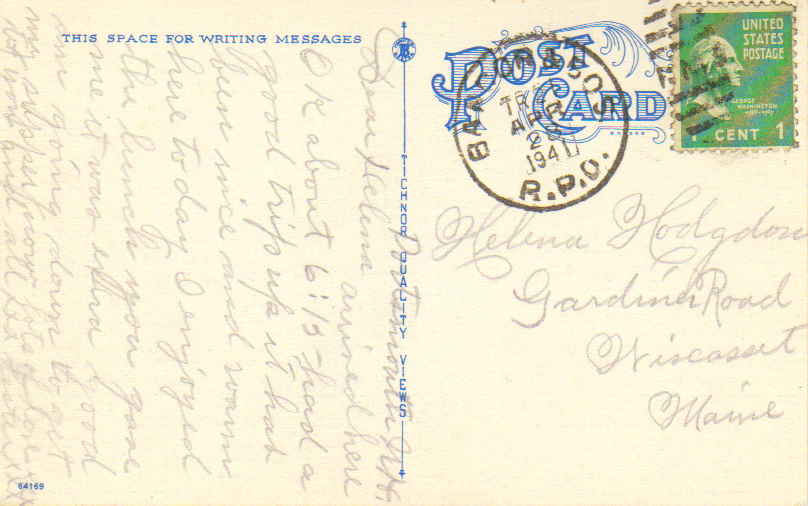 THIS SPACE FOR WRITING MESSAGES
POST CARD
BAN. & BOS.
TR
APR
28
1941
R.P.O.
UNITED
STATES
POSTAGE
GEORGE
WASHINGTON
1 CENT 1
Portsmouth N.H.
Dear Helena arrived here
O.K. about 6:15 - had a
good trip up it has
been nice and warm
here today I enjoyed
the lunch you gave
me it was extra good
am going down to get
my supper now lots of love
to you and all
TICHNOR QUALITY VIEWS
Helena Hodgdon
Gardiner Road
Wiscasset
Maine
64169